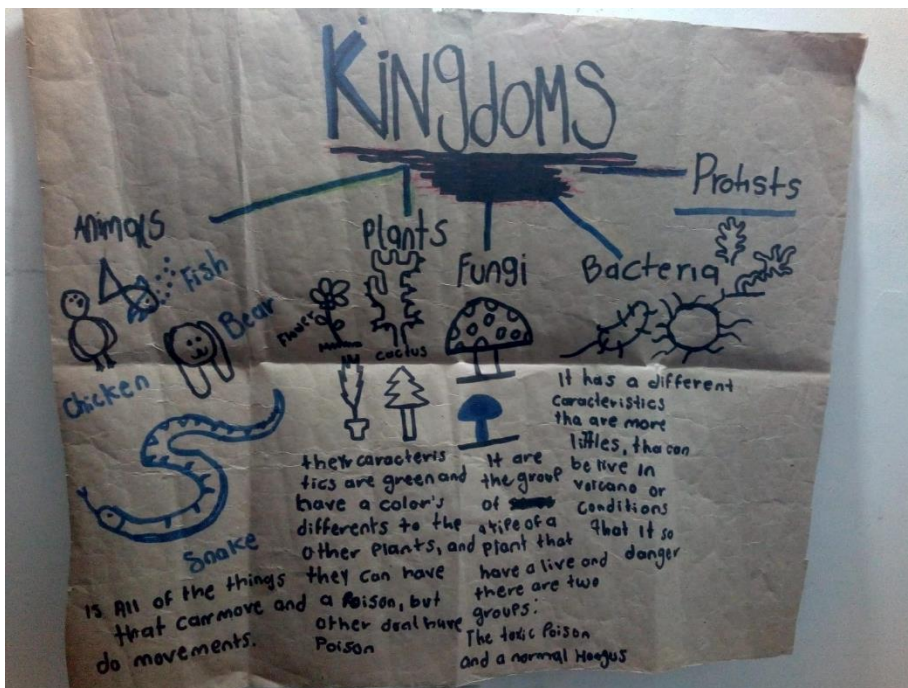 Kingdoms
Animals
Fish
Bear
Chicken
Snake
is All of the things
that can move and
do movements.
Plants
Flower
cactus
their caracteris
tics are green and
have a color's
differents to the
other Plants, and
they can have
a Poison, but
other donl have
Poison
Fungi
It are
the group
of
a tipe of a
plant that
have a live and
there are two
groups:
The toxic Poison
and a normal Hongus
Bacteria
It has a different
caracteristics
tha are more
littles, tha can
be live in
volcano or
conditions
that it so
danger
Protists